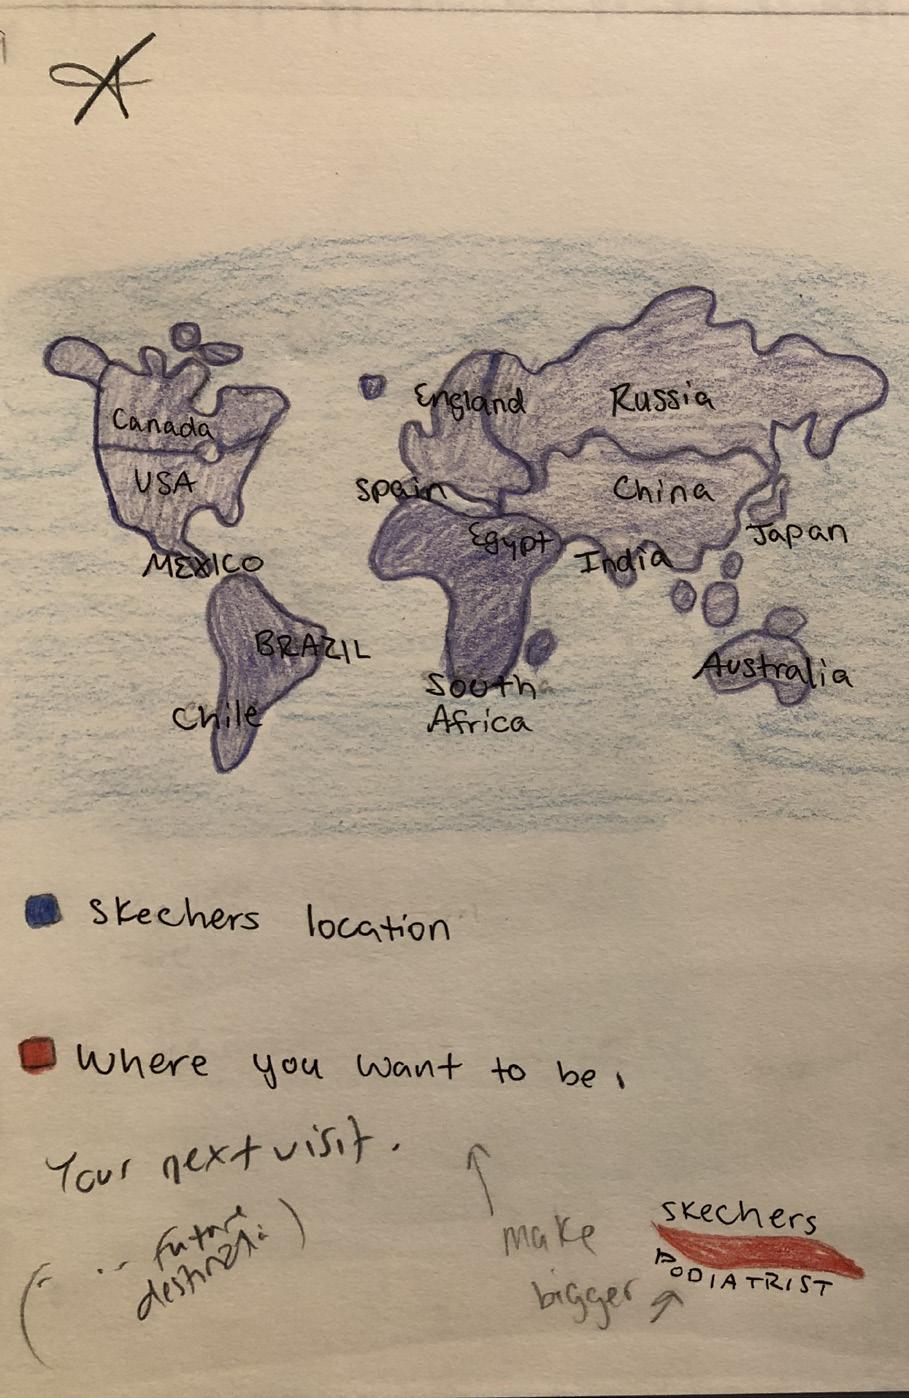 England
Russia
Canada
USA
Spain
China
Egypt
Japan
India
MEXICO
BRAZIL
Australia
South
Africa
Chile
Skechers location
Where you want to be,
Your next visit.
(
future
)
make
bigger
Skechers
PODIATRIST